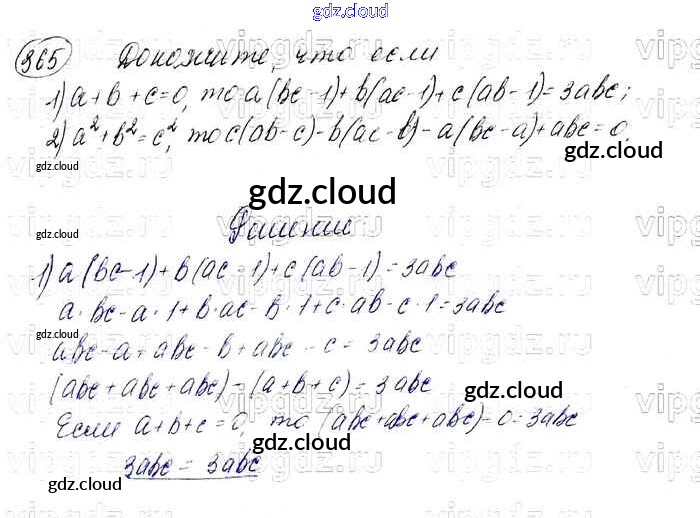 gdz.cloud
365 Докажите, что если
1) a+b+c=0, то a(bc-1)+b(ac-1)+c(ab-1)=3abc;
2) a²+b²=c², то c(ab-c)-b(ac-b)-a(bc-a)+abc=0.
gdz.cloud
gdz.cloud
gdz.cloud
gdz.cloud
Решение
1) a(bc-1)+b(ac-1)+c(ab-1)=3abc
a·bc-a·1+b·ac-b·1+c·ab-c·1=3abc
gdz.cloud
abc-a+abc-b+abc-c=3abc
(abc+abc+abc)-(a+b+c)=3abc
gdz.cloud
Если a+b+c=0, то (abc+abc+abc)-0=3abc
gdz.cloud
3abc=3abc
gdz.cloud
gdz.cloud
vipgdz.ru